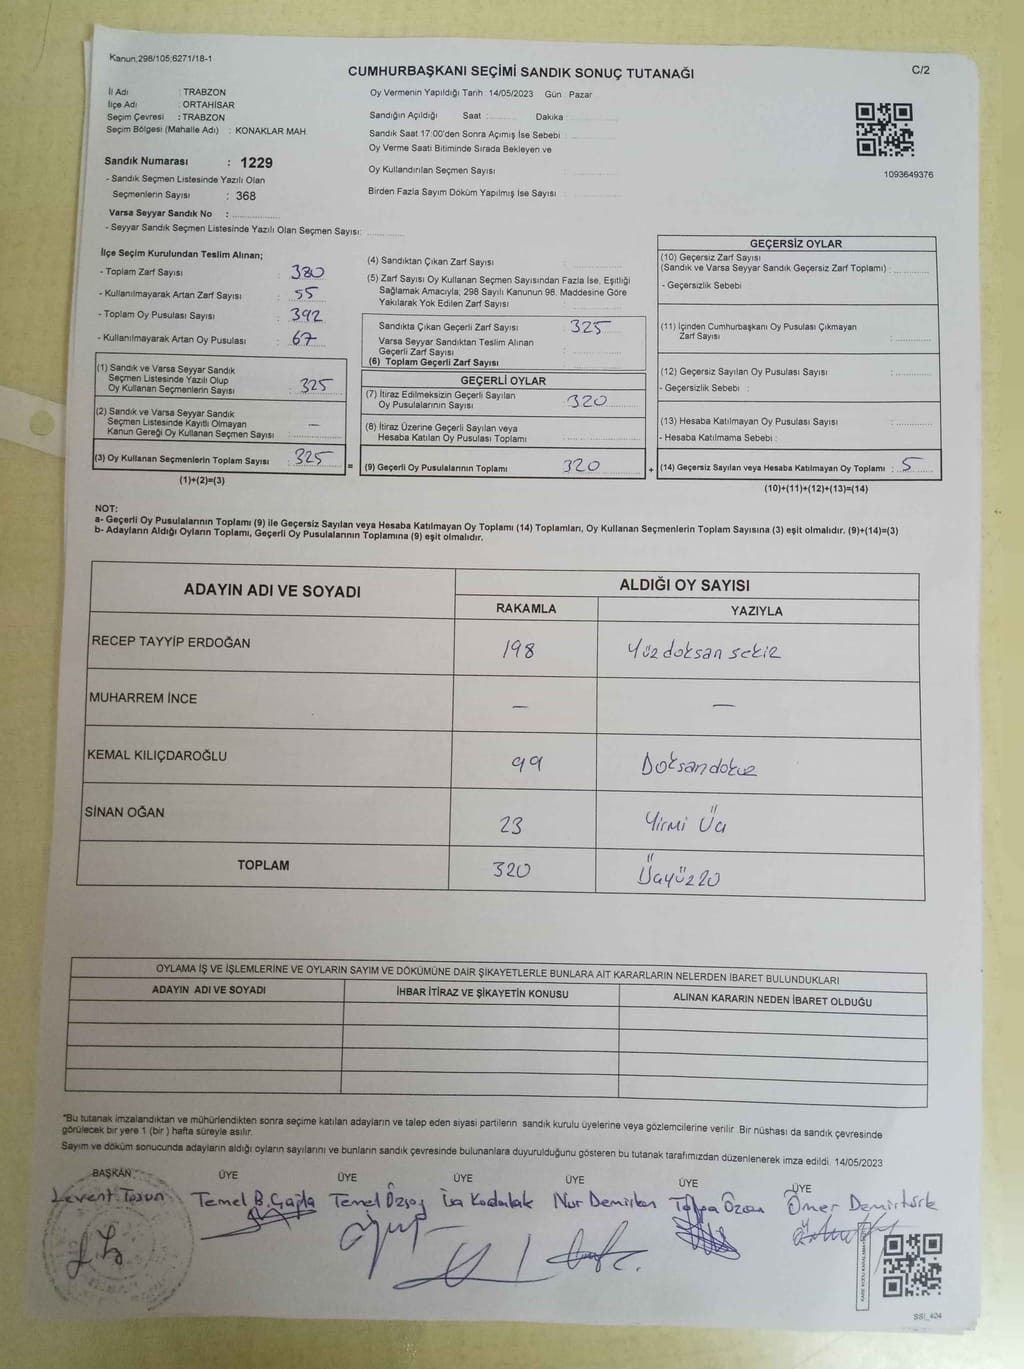 Kanun;298/105,6271/18-1
C/2
CUMHURBAŞKANI SEÇİMİ SANDIK SONUÇ TUTANAĞI
İl Adı : TRABZON
İlçe Adı : ORTAHİSAR
Seçim Çevresi : TRABZON
Seçim Bölgesi (Mahalle Adı) : KONAKLAR MAH.
Sandık Numarası : 1229
- Sandık Seçmen Listesinde Yazılı Olan
Seçmenlerin Sayısı : 368
Varsa Seyyar Sandık No :
- Seyyar Sandık Seçmen Listesinde Yazılı Olan Seçmen Sayısı:
Oy Vermenin Yapıldığı Tarih : 14/05/2023 Gün : Pazar
Sandığın Açıldığı Saat : Dakika
Sandık Saat 17:00'den Sonra Açımış İse Sebebi
Oy Verme Saati Bitiminde Sırada Bekleyen ve
Oy Kullandırılan Seçmen Sayısı
Birden Fazla Sayım Döküm Yapılmış İse Sayısı
1093649376
İlçe Seçim Kurulundan Teslim Alınan;
- Toplam Zarf Sayısı : 380
- Kullanılmayarak Artan Zarf Sayısı : 55
- Toplam Oy Pusulası Sayısı : 392
- Kullanılmayarak Artan Oy Pusulası : 67
(1) Sandık ve Varsa Seyyar Sandık
Seçmen Listesinde Yazılı Olup
Oy Kullanan Seçmenlerin Sayısı : 325
(2) Sandık ve Varsa Seyyar Sandık
Seçmen Listesinde Kayıtlı Olmayan
Kanun Gereği Oy Kullanan Seçmen Sayısı : —
(3) Oy Kullanan Seçmenlerin Toplam Sayısı : 325
(1)+(2)=(3)
(4) Sandıktan Çıkan Zarf Sayısı :
(5) Zarf Sayısı Oy Kullanan Seçmen Sayısından Fazla İse, Eşitliği
Sağlamak Amacıyla; 298 Sayılı Kanunun 98. Maddesine Göre
Yakılarak Yok Edilen Zarf Sayısı :
Sandıkta Çıkan Geçerli Zarf Sayısı : 325
Varsa Seyyar Sandıktan Teslim Alınan
Geçerli Zarf Sayısı :
(6) Toplam Geçerli Zarf Sayısı
GEÇERLİ OYLAR
(7) İtiraz Edilmeksizin Geçerli Sayılan
Oy Pusulalarının Sayısı : 320
(8) İtiraz Üzerine Geçerli Sayılan veya
Hesaba Katılan Oy Pusulası Toplamı :
= (9) Geçerli Oy Pusulalarının Toplamı : 320
GEÇERSİZ OYLAR
(10) Geçersiz Zarf Sayısı
(Sandık ve Varsa Seyyar Sandık Geçersiz Zarf Toplamı) :
- Geçersizlik Sebebi :
(11) İçinden Cumhurbaşkanı Oy Pusulası Çıkmayan
Zarf Sayısı :
(12) Geçersiz Sayılan Oy Pusulası Sayısı :
- Geçersizlik Sebebi :
(13) Hesaba Katılmayan Oy Pusulası Sayısı :
- Hesaba Katılmama Sebebi :
+ (14) Geçersiz Sayılan veya Hesaba Katılmayan Oy Toplamı : 5
(10)+(11)+(12)+(13)=(14)
NOT:
a- Geçerli Oy Pusulalarının Toplamı (9) ile Geçersiz Sayılan veya Hesaba Katılmayan Oy Toplamı (14) Toplamları, Oy Kullanan Seçmenlerin Toplam Sayısına (3) eşit olmalıdır. (9)+(14)=(3)
b- Adayların Aldığı Oyların Toplamı, Geçerli Oy Pusulalarının Toplamına (9) eşit olmalıdır.
ADAYIN ADI VE SOYADI
ALDIĞI OY SAYISI
RAKAMLA YAZIYLA
RECEP TAYYİP ERDOĞAN 198 Yüzdoksan sekiz
MUHARREM İNCE — —
KEMAL KILIÇDAROĞLU 99 Doksandokuz
SİNAN OĞAN 23 Yirmi Üç
TOPLAM 320 Üçyüz20
OYLAMA İŞ VE İŞLEMLERİNE VE OYLARIN SAYIM VE DÖKÜMÜNE DAİR ŞİKAYETLERLE BUNLARA AİT KARARLARIN NELERDEN İBARET BULUNDUKLARI
ADAYIN ADI VE SOYADI İHBAR İTİRAZ VE ŞİKAYETİN KONUSU ALINAN KARARIN NEDEN İBARET OLDUĞU
*Bu tutanak imzalandıktan ve mühürlendikten sonra seçime katılan adayların ve talep eden siyasi partilerin sandık kurulu üyelerine veya gözlemcilerine verilir .Bir nüshası da sandık çevresinde
görülecek bir yere 1 (bir ) hafta süreyle asılır.
Sayım ve döküm sonucunda adayların aldığı oyların sayılarını ve bunların sandık çevresinde bulunanlara duyurulduğunu gösteren bu tutanak tarafımızdan düzenlenerek imza edildi. 14/05/2023
BAŞKAN ÜYE ÜYE ÜYE ÜYE ÜYE ÜYE
Levent Tosun Temel B. Temel İsa Kodalak Nur Demirken Özcan Ömer Demirtürk
SSI_404